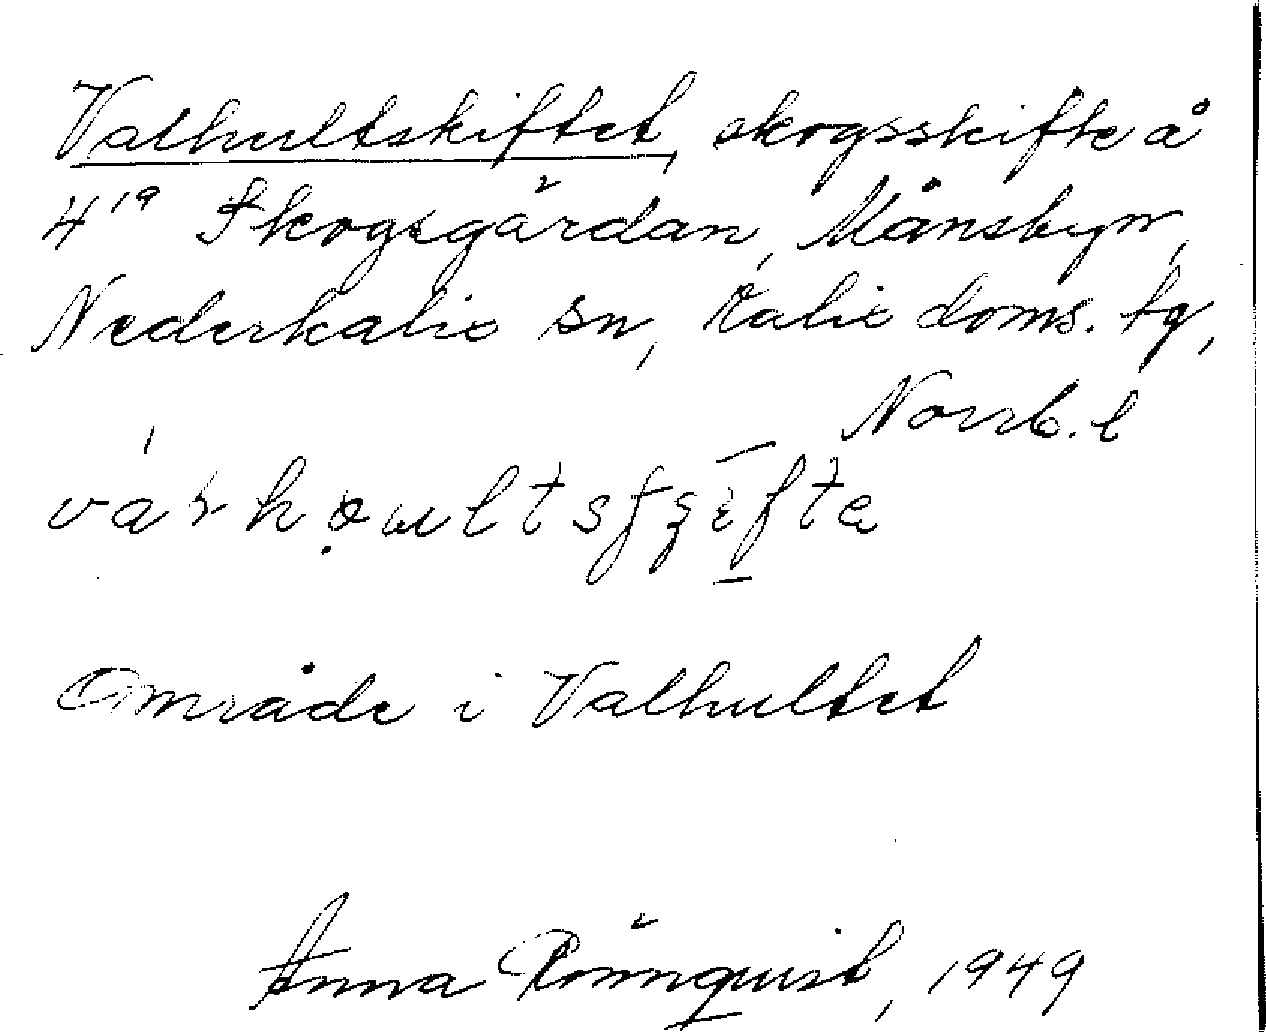 Valhultskiftet, skogsskifte å
4¹⁹ Skogsgärdan, Månsbyn,
Nederkalix sn, Kalix doms. tg,
Norrb. l
Område i Valhultet
Anna Rönnquist, 1949